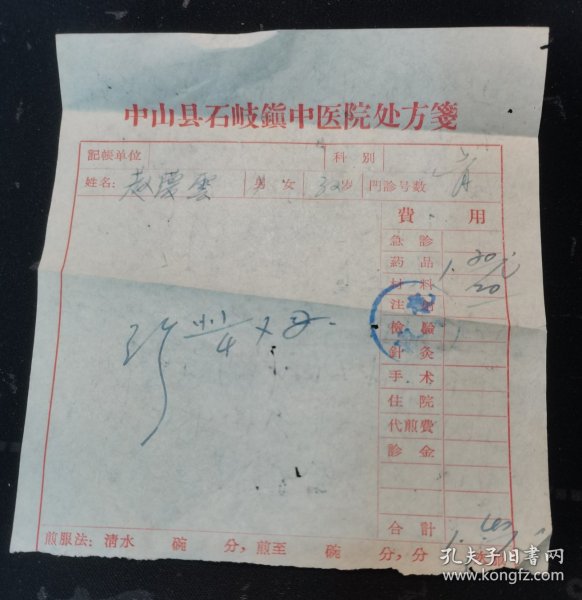 中山县石岐鎭中医院处方箋
記帳单位 科别
姓名: 赵慶雲 男 女 32岁 門診号数
費用
急診
药品 1.20元
材料 20
注射
檢驗
針灸
手术
住院
代煎費
診金
合計 1.40
煎服法: 清水 碗 分,煎至 碗 分,分
孔夫子旧书网
www.kongfz.com